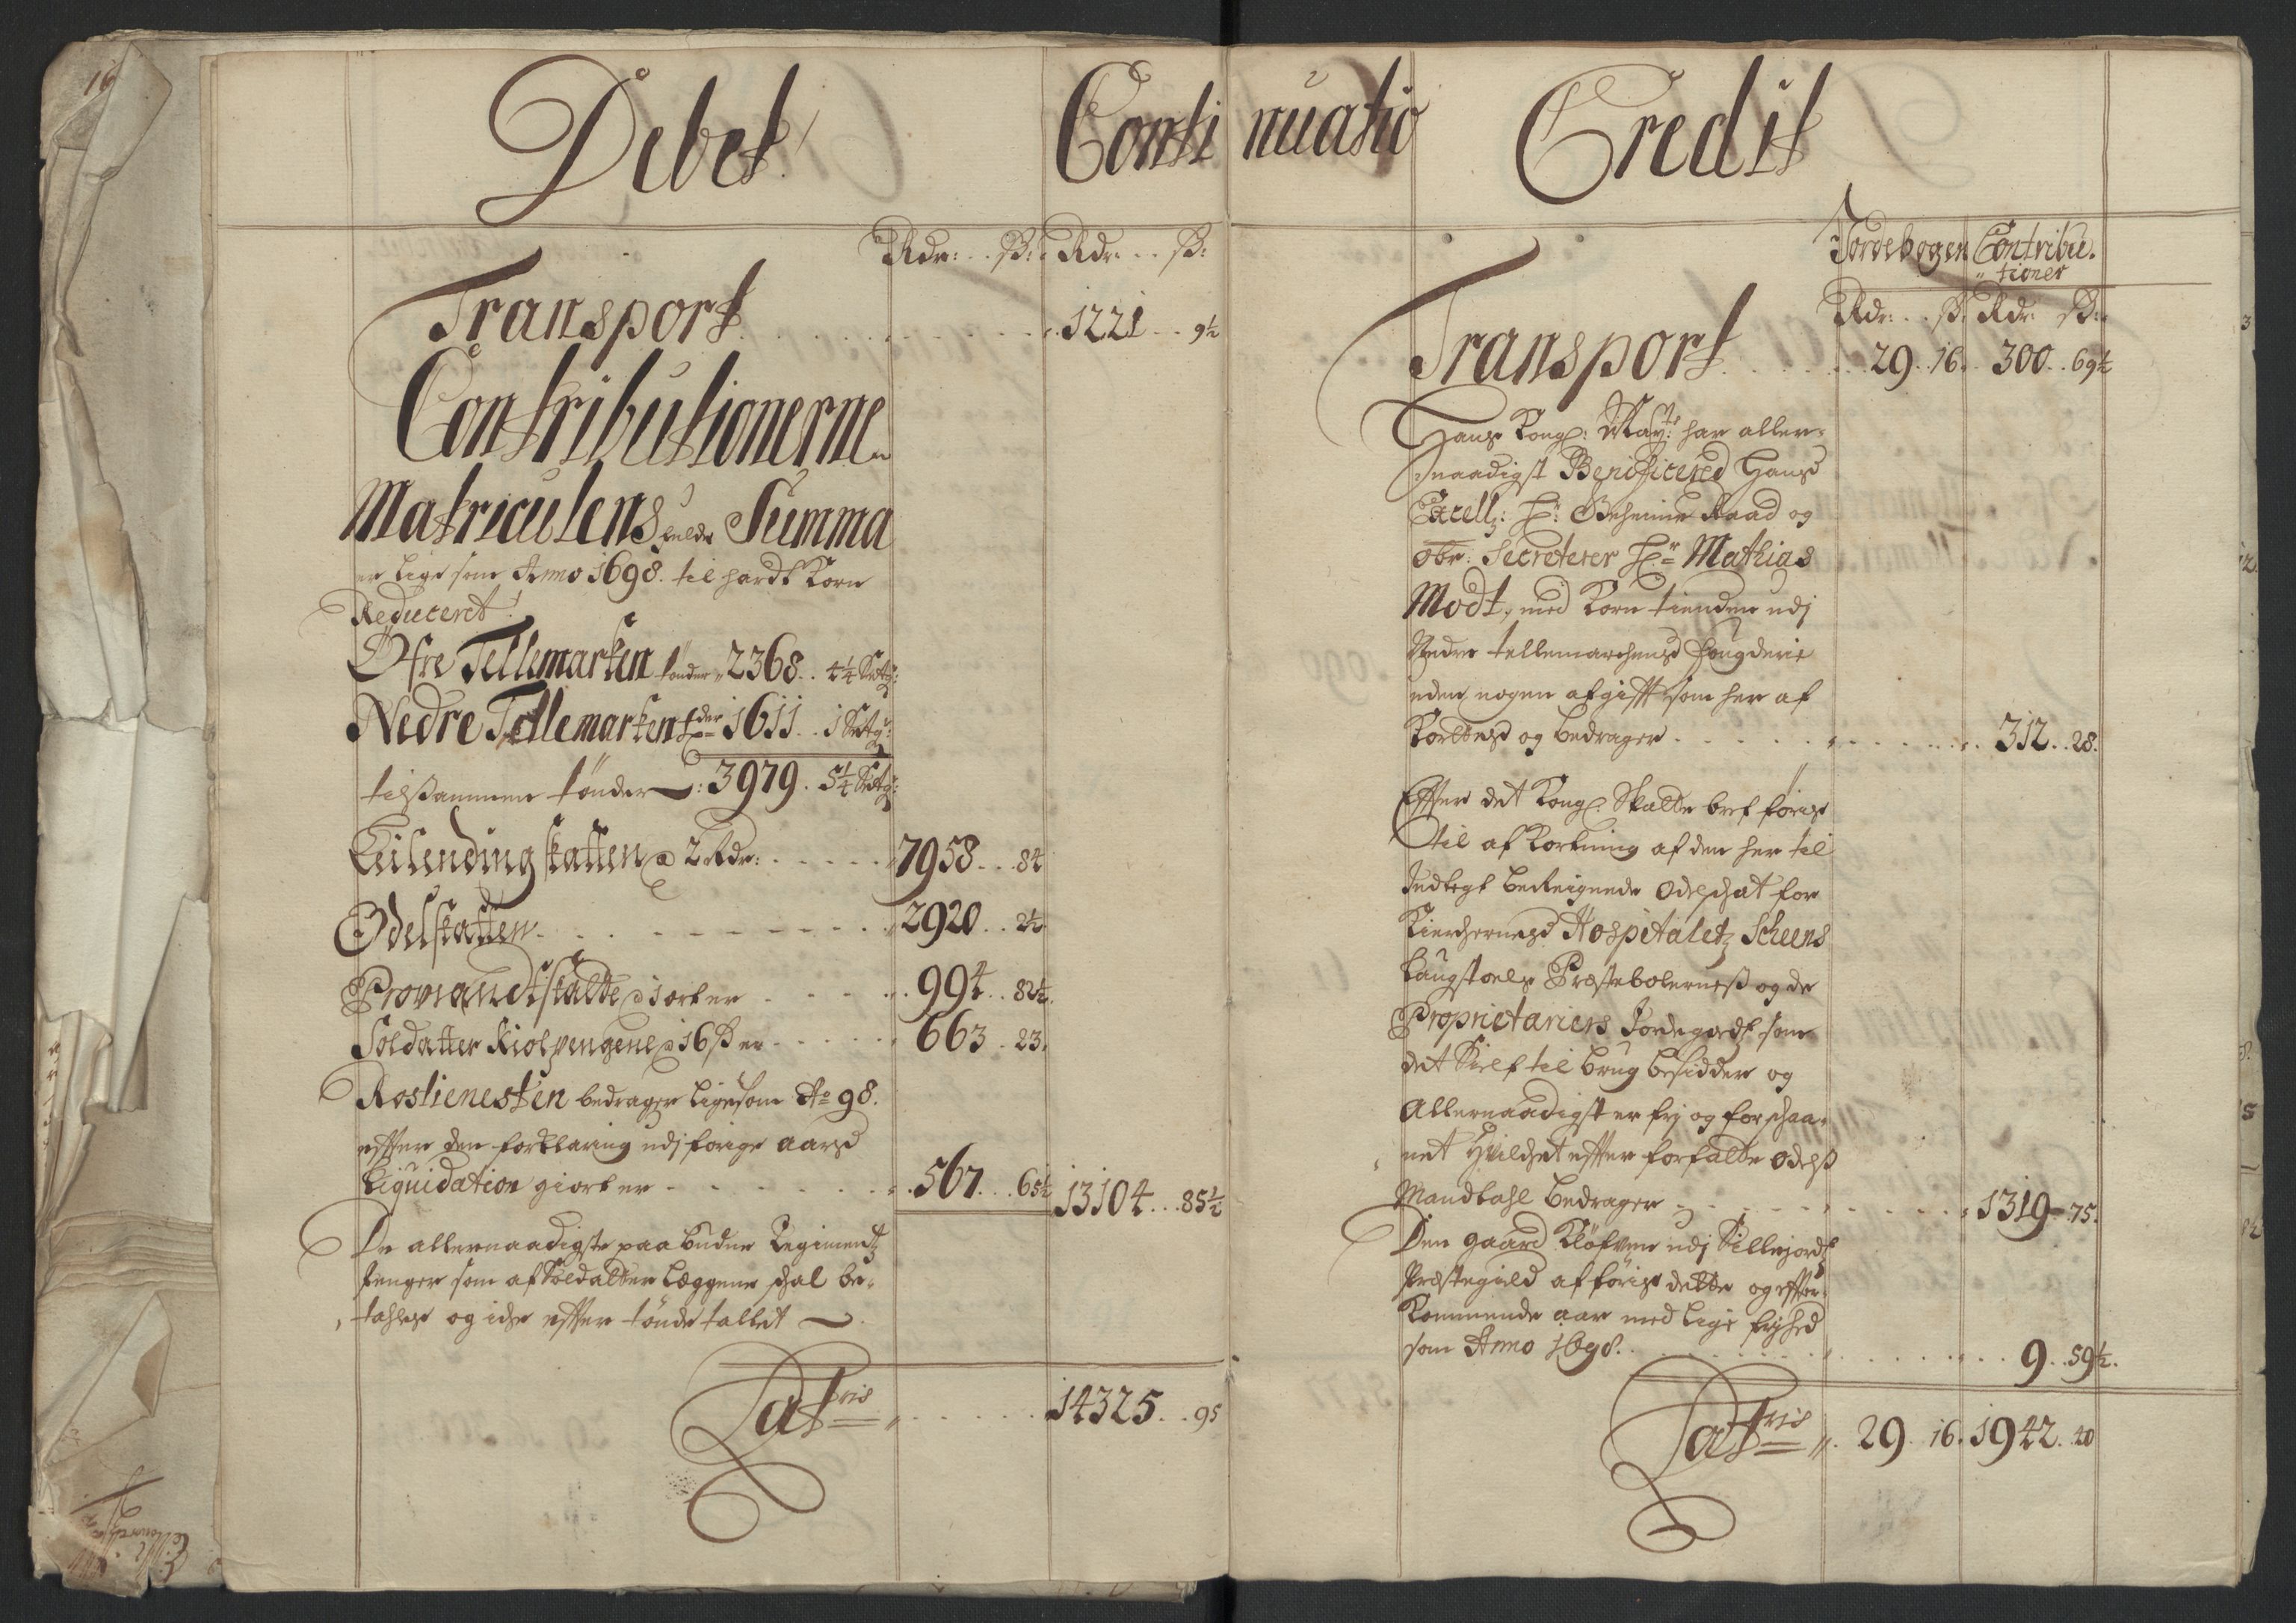 Debet
Continuatio
Rdr: ß: Rdr ß:
Transport 1221 9½
Contributionerne
Matriculens fulde Summa
er lige som Anno 1698. til hardt Korn
Reduceret
Øfre Tellemarken tønder 2368 4¼ Sett:
Nedre Tellemarken tder 1611 1 Sett:
tilsammen tønder 3979. 5¼ Sett:
Leilending skatten a 2 Rdr: 7958 84
Odelskatten 2920 2½
Proviandtskatte a 1 ort er 994 82½
Soldatter Kiolpengene a 16 ß er 663 23
Rostienesten bedrager ligesom Ao 98.
effter den forklaring udj forige aars
Liquidation giort er 567 65½ 13104 85½
De allernaadigste paabudne Regimentz
penger som af Soldatter Læggene schal be-
tahles og icke effter tøndetallet
Latris 14325 95
Credit
Jordebogen Contribu-
tioner
Rdr: ß: Rdr ß:
Transport 29 16 300 69½
Hans Kongl: Mayts: har aller-
naadigst Benificered Hans
Excell: Hr: Geheime Raad og
obr: Secreterer Hr Mathias
Modt, med Korn tienden udj
Nedre tellemarchens fougderie
uden nogen afgifft som her af
Kortes og bedrager 312 28
Effter det Kongl. Skatte bref føris
til af Kortning af den her til
Indtegt bereignede odelschat for
Kierchernes Hospitaletz Scheens
Laugstoels Præstebolerness og de
Proprietariers Jordegods som
det Sielf til brug besidder og
Allernaadigst er frj og forschaa-
net Hvilchet effter forfatte odels
Mandtahl bedrager 1319 75
Den gaard Kløfven udj Sillejordtz
Præstegield afføris dette og effter-
kommende aar med lige frjhed
som Anno 1698. 9 59½
Latris 29 16 1942 40